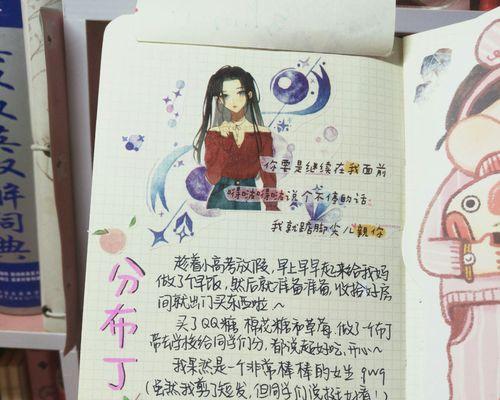 汉英汉解词典
你要是继续在我面前
嘚吧嘚吧嘚说个不停的话
我就踮脚尖儿亲你
分布丁
趁着小高考放假,早上早早起来给我妈
做了个早饭,然后就准备准备,收拾好房
间就出门买东西啦~
买了QQ糖,棉花糖和草莓,做了个布丁
带去学校给同学们分,都说超好吃,开心~
我果然是一个非常棒棒的女生 qwq
(虽然我剪了短发,但同学们说挺好看!)